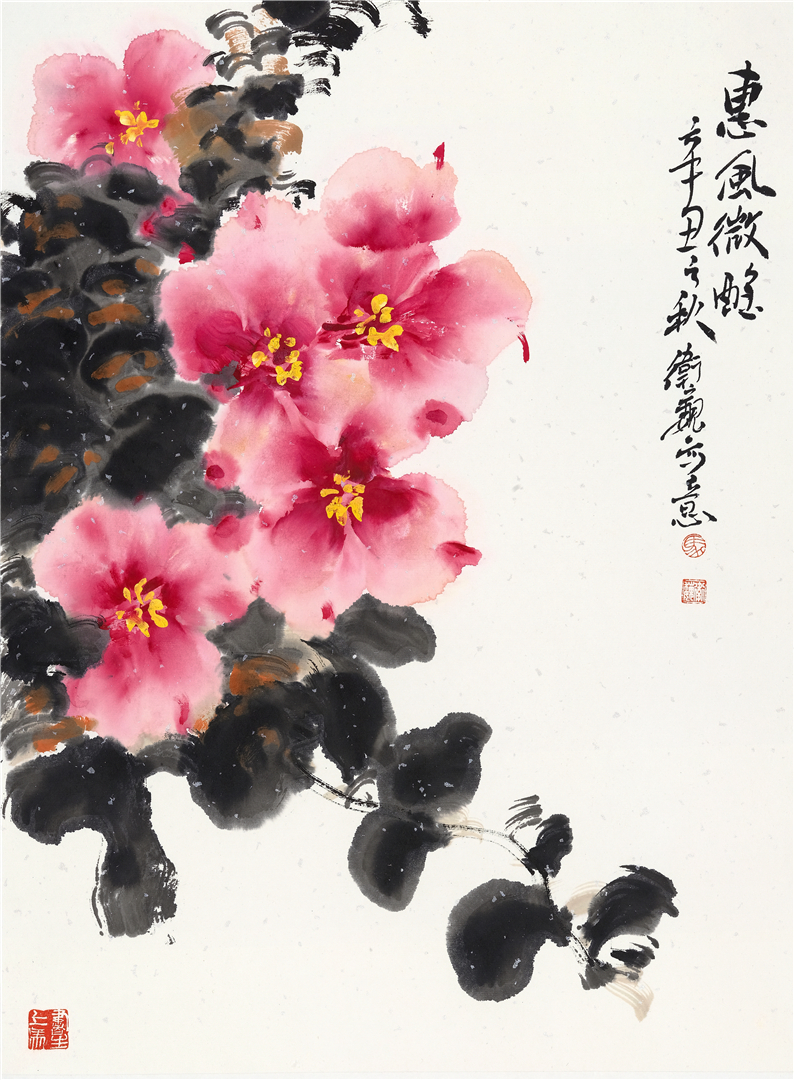 惠風微醺
辛丑之秋 衛巍写意